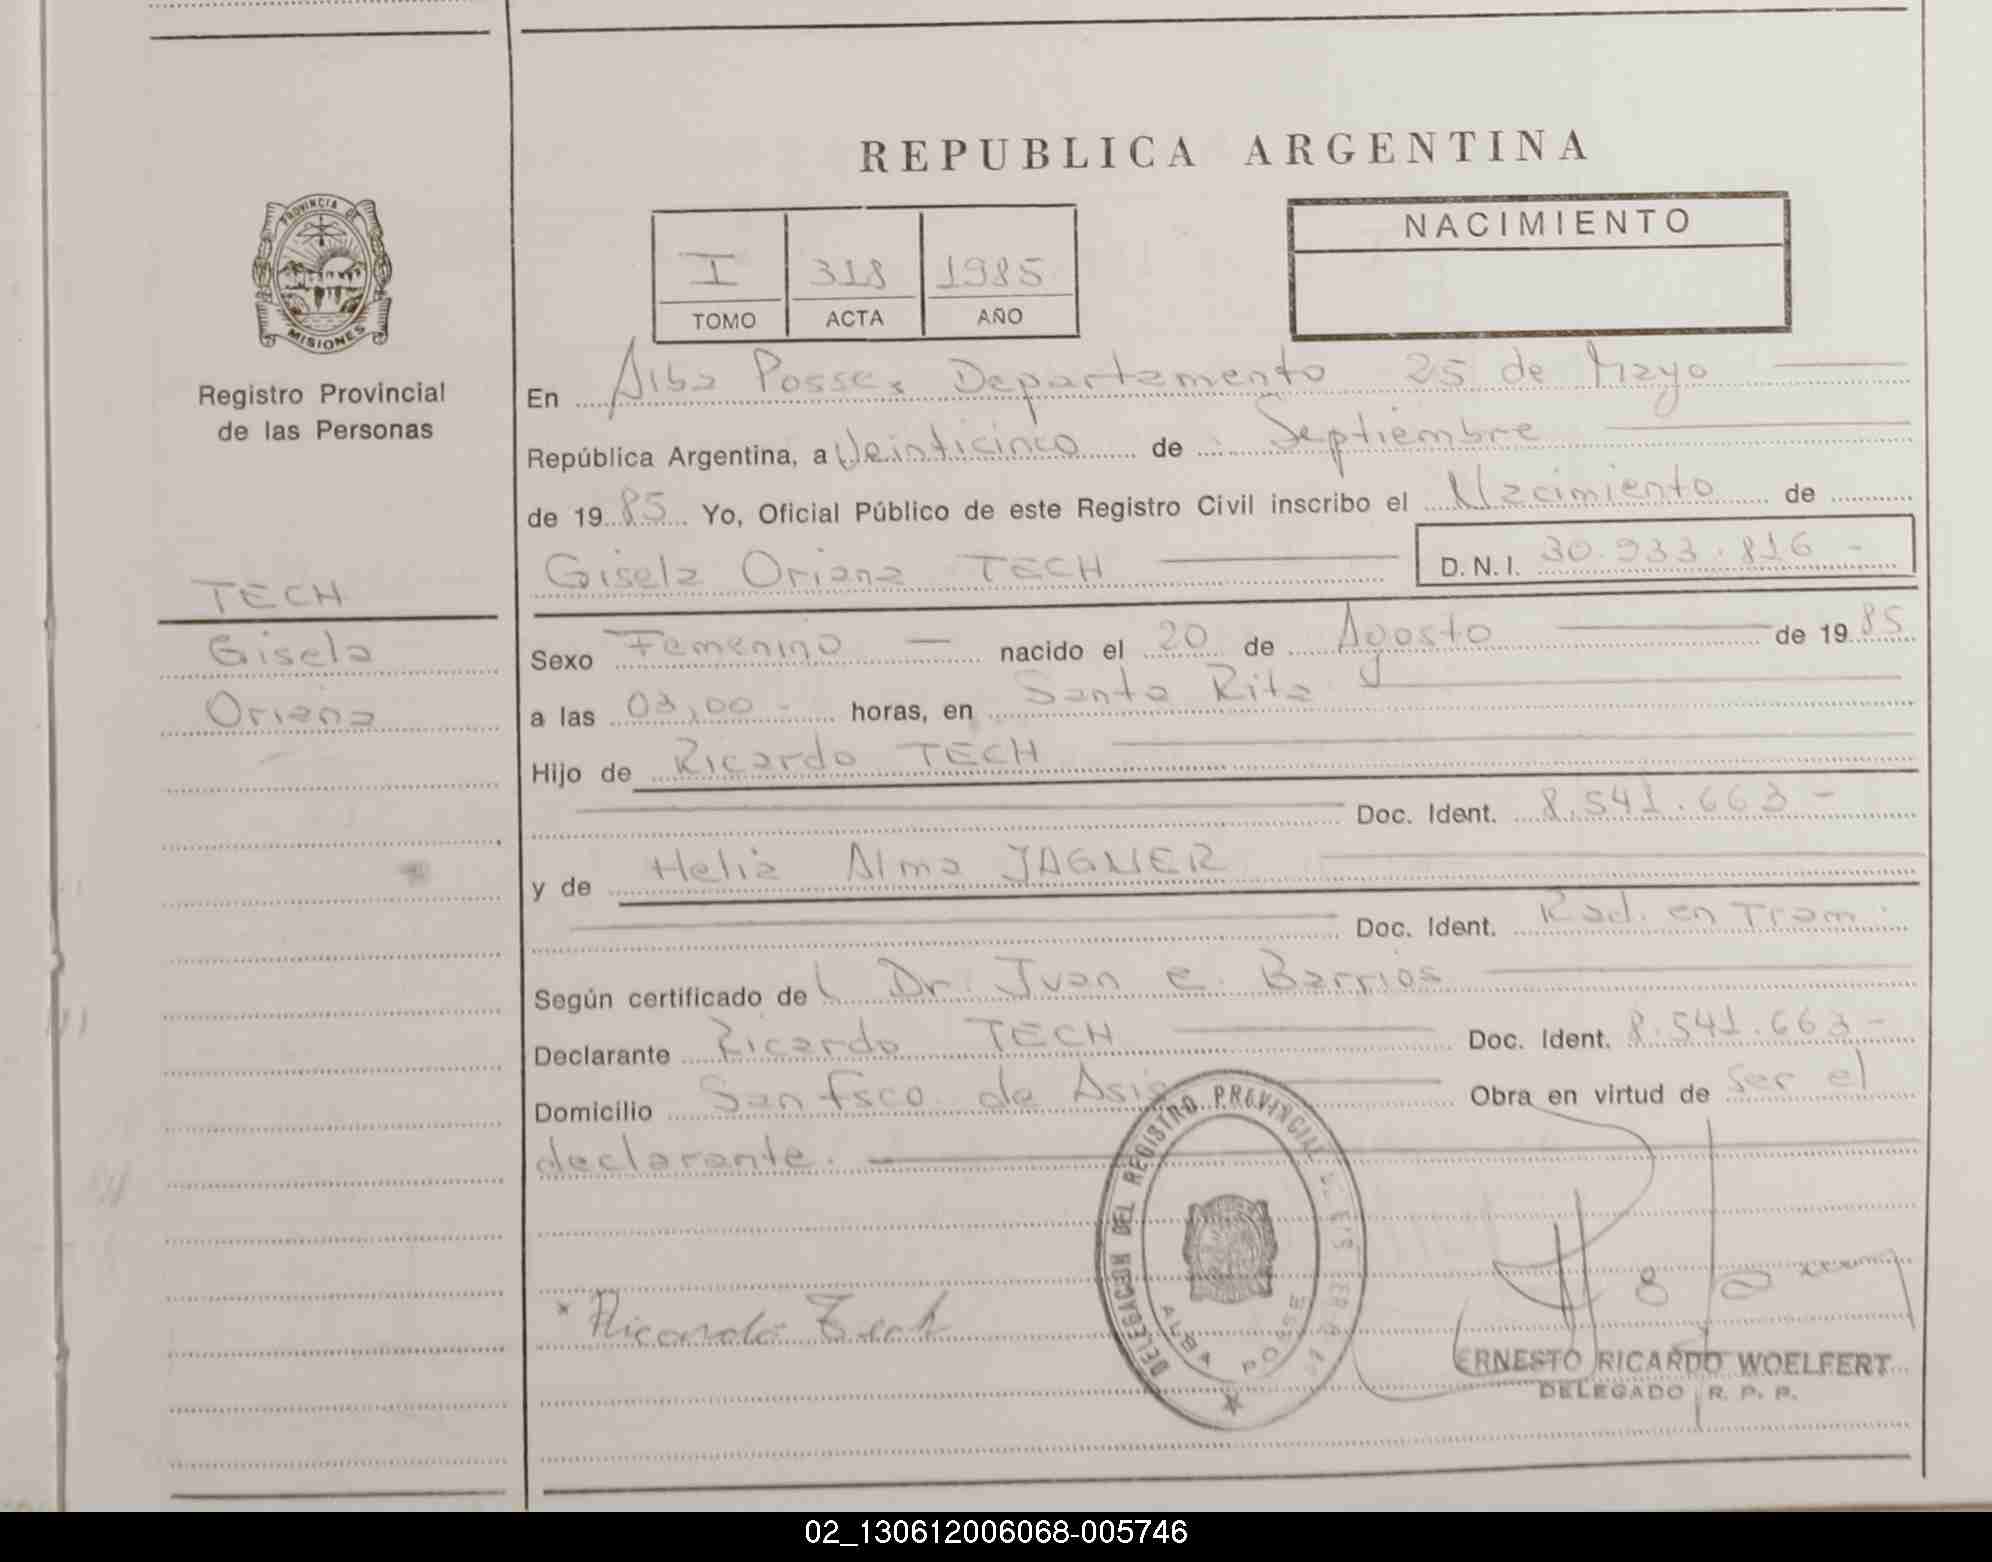 REPUBLICA ARGENTINA
PROVINCIA DE
MISIONES
Registro Provincial
de las Personas
I 318 1985
TOMO ACTA AÑO
NACIMIENTO
En Alba Posse, Departamento 25 de Mayo
República Argentina, a Veinticinco de Septiembre
de 1985 Yo, Oficial Público de este Registro Civil inscribo el Nacimiento de
Gisela Oriana TECH D.N.I. 30.933.816 -
TECH
Gisela
Oriana
Sexo Femenino — nacido el 20 de Agosto de 1985
a las 03,00 - horas, en Santa Rita
Hijo de Ricardo TECH
Doc. Ident. 8.541.663 -
y de Helia Alma JAGNER
Doc. Ident. Rad. en Tram.
Según certificado de Dr. Juan C. Barrios
Declarante Ricardo TECH Doc. Ident. 8.541.663 -
Domicilio San Fsco. de Asis Obra en virtud de ser el
declarante.
DELEGACION DEL REGISTRO PROVINCIAL DE
ALBA POSSE
* Ricardo Tech
ERNESTO RICARDO WOELFERT
DELEGADO R. P. P.
02_130612006068-005746